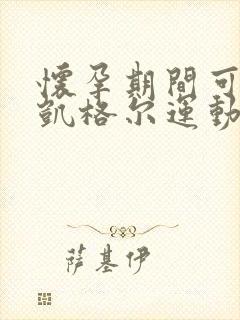 懷孕期間可
凱格尔運動
萨基伊